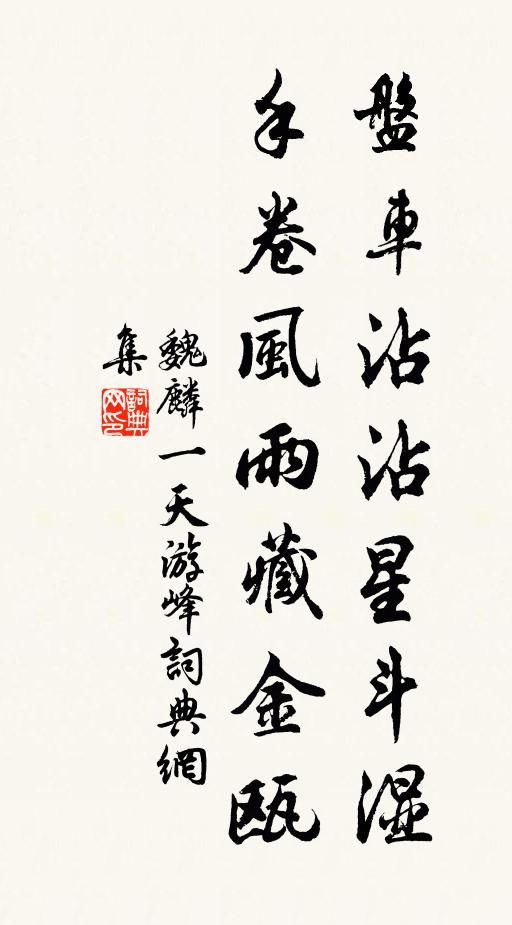 盤車沾沾星斗濕
手卷風雨藏金甌
魏麟一天游峰詞典網
集
詞典網印